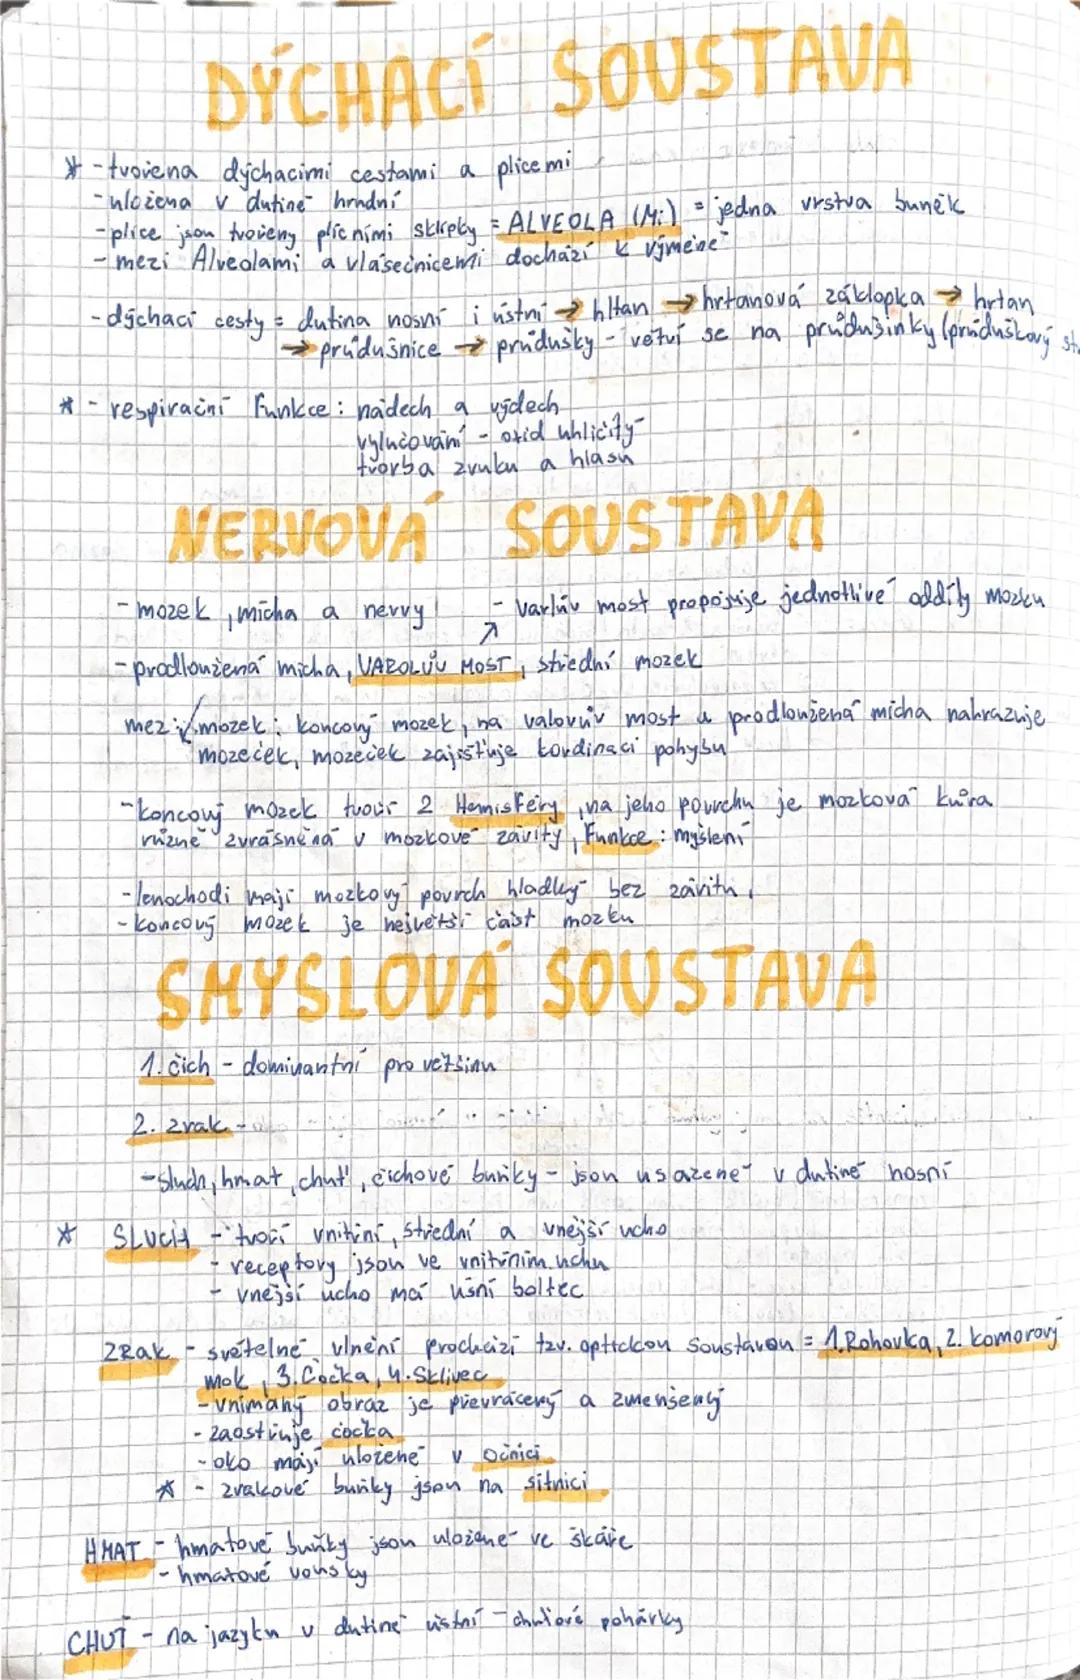 DÝCHACÍ SOUSTAVA
* - tvořena dýchacími cestami a plicemi
- uložena v dutině hrudní
- plice jsou tvořeny plicními sklípky = ALVEOLA (Mi) = jedna vrstva buněk
- mezi Alveolami a vlásečnicemi dochází k výměně
- dýchací cesty = dutina nosní i ústní → hltan → hrtanová záklopka → hrtan
→ průdušnice → průdušky - větví se na průdušinky (průduškový
* - respirační funkce : nádech a výdech
vylučování - oxid uhličitý
tvorba zvuku a hlasu
NERVOVÁ SOUSTAVA
- mozek, mícha a nervy - Varlův most propojuje jednotlivé oddíly mozku
- prodloužená mícha, VAROLŮV MOST, střední mozek
mezi mozek : koncový mozek, na valorův most a prodloužená mícha nahrazuje
mozeček, mozeček zajišťuje kordinaci pohybu
- koncový mozek tvoří 2 Hemisféry, na jeho povrchu je mozková kůra
různě zvrásněná v mozkové závity, Funkce : myšlení
- lenochodi mají mozkový povrch hladký bez závitu.
- koncový mozek je největší část mozku
SMYSLOVÁ SOUSTAVA
1. čich - dominantní pro většinu
2. zrak -
- sluch, hmat, chuť, čichové buňky - jsou usazené v dutině nosní
* SLUCH - tvoří vnitřní, střední a vnější ucho
- receptory jsou ve vnitřním uchu
- vnější ucho má ušní boltec
ZRAK - světelné vlnění prochází tzv. optickou soustavou = 1. Rohovka, 2. komorový
mok, 3. Čočka, 4. Sklivec
- vnímaný obraz je převrácený a zmenšený
- zaostřuje čočka
- oko mají uložené v očnici
* - zrakové buňky jsou na sítnici
HMAT - hmatové buňky jsou uložené ve škáře
- hmatové vousky
CHUŤ - na jazyku v dutině ústní - chuťové pohárky